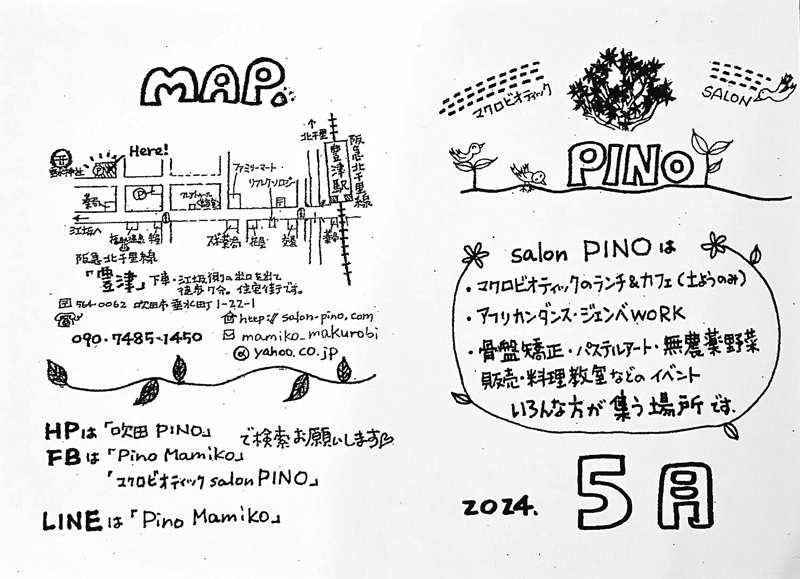 MAP.
Here!
北千里
阪急北千里線
豊津駅
ファミリーマート
リフレクソロジー
P
江坂へ
阪急北千里線
「豊津」下車・江坂側の出口を出て
徒歩7分。住宅街です。
564-0062 吹田市垂水町1-22-1
090-7485-1450
http://salon-pino.com
mamiko_makurobi
@yahoo.co.jp
HPは「吹田PINO」で検索お願いします
FBは「Pino Mamiko」
「マクロビオティック salon PINO」
LINEは「Pino Mamiko」
マクロビオティック
SALON
PINO
salon PINOは
・マクロビオティックのランチ&カフェ(土ようのみ)
・アフリカンダンス・ジェンベWORK
・骨盤矯正・パステルアート・無農薬野菜
販売・料理教室などのイベント
いろんな方が集う場所です。
2024. 5月